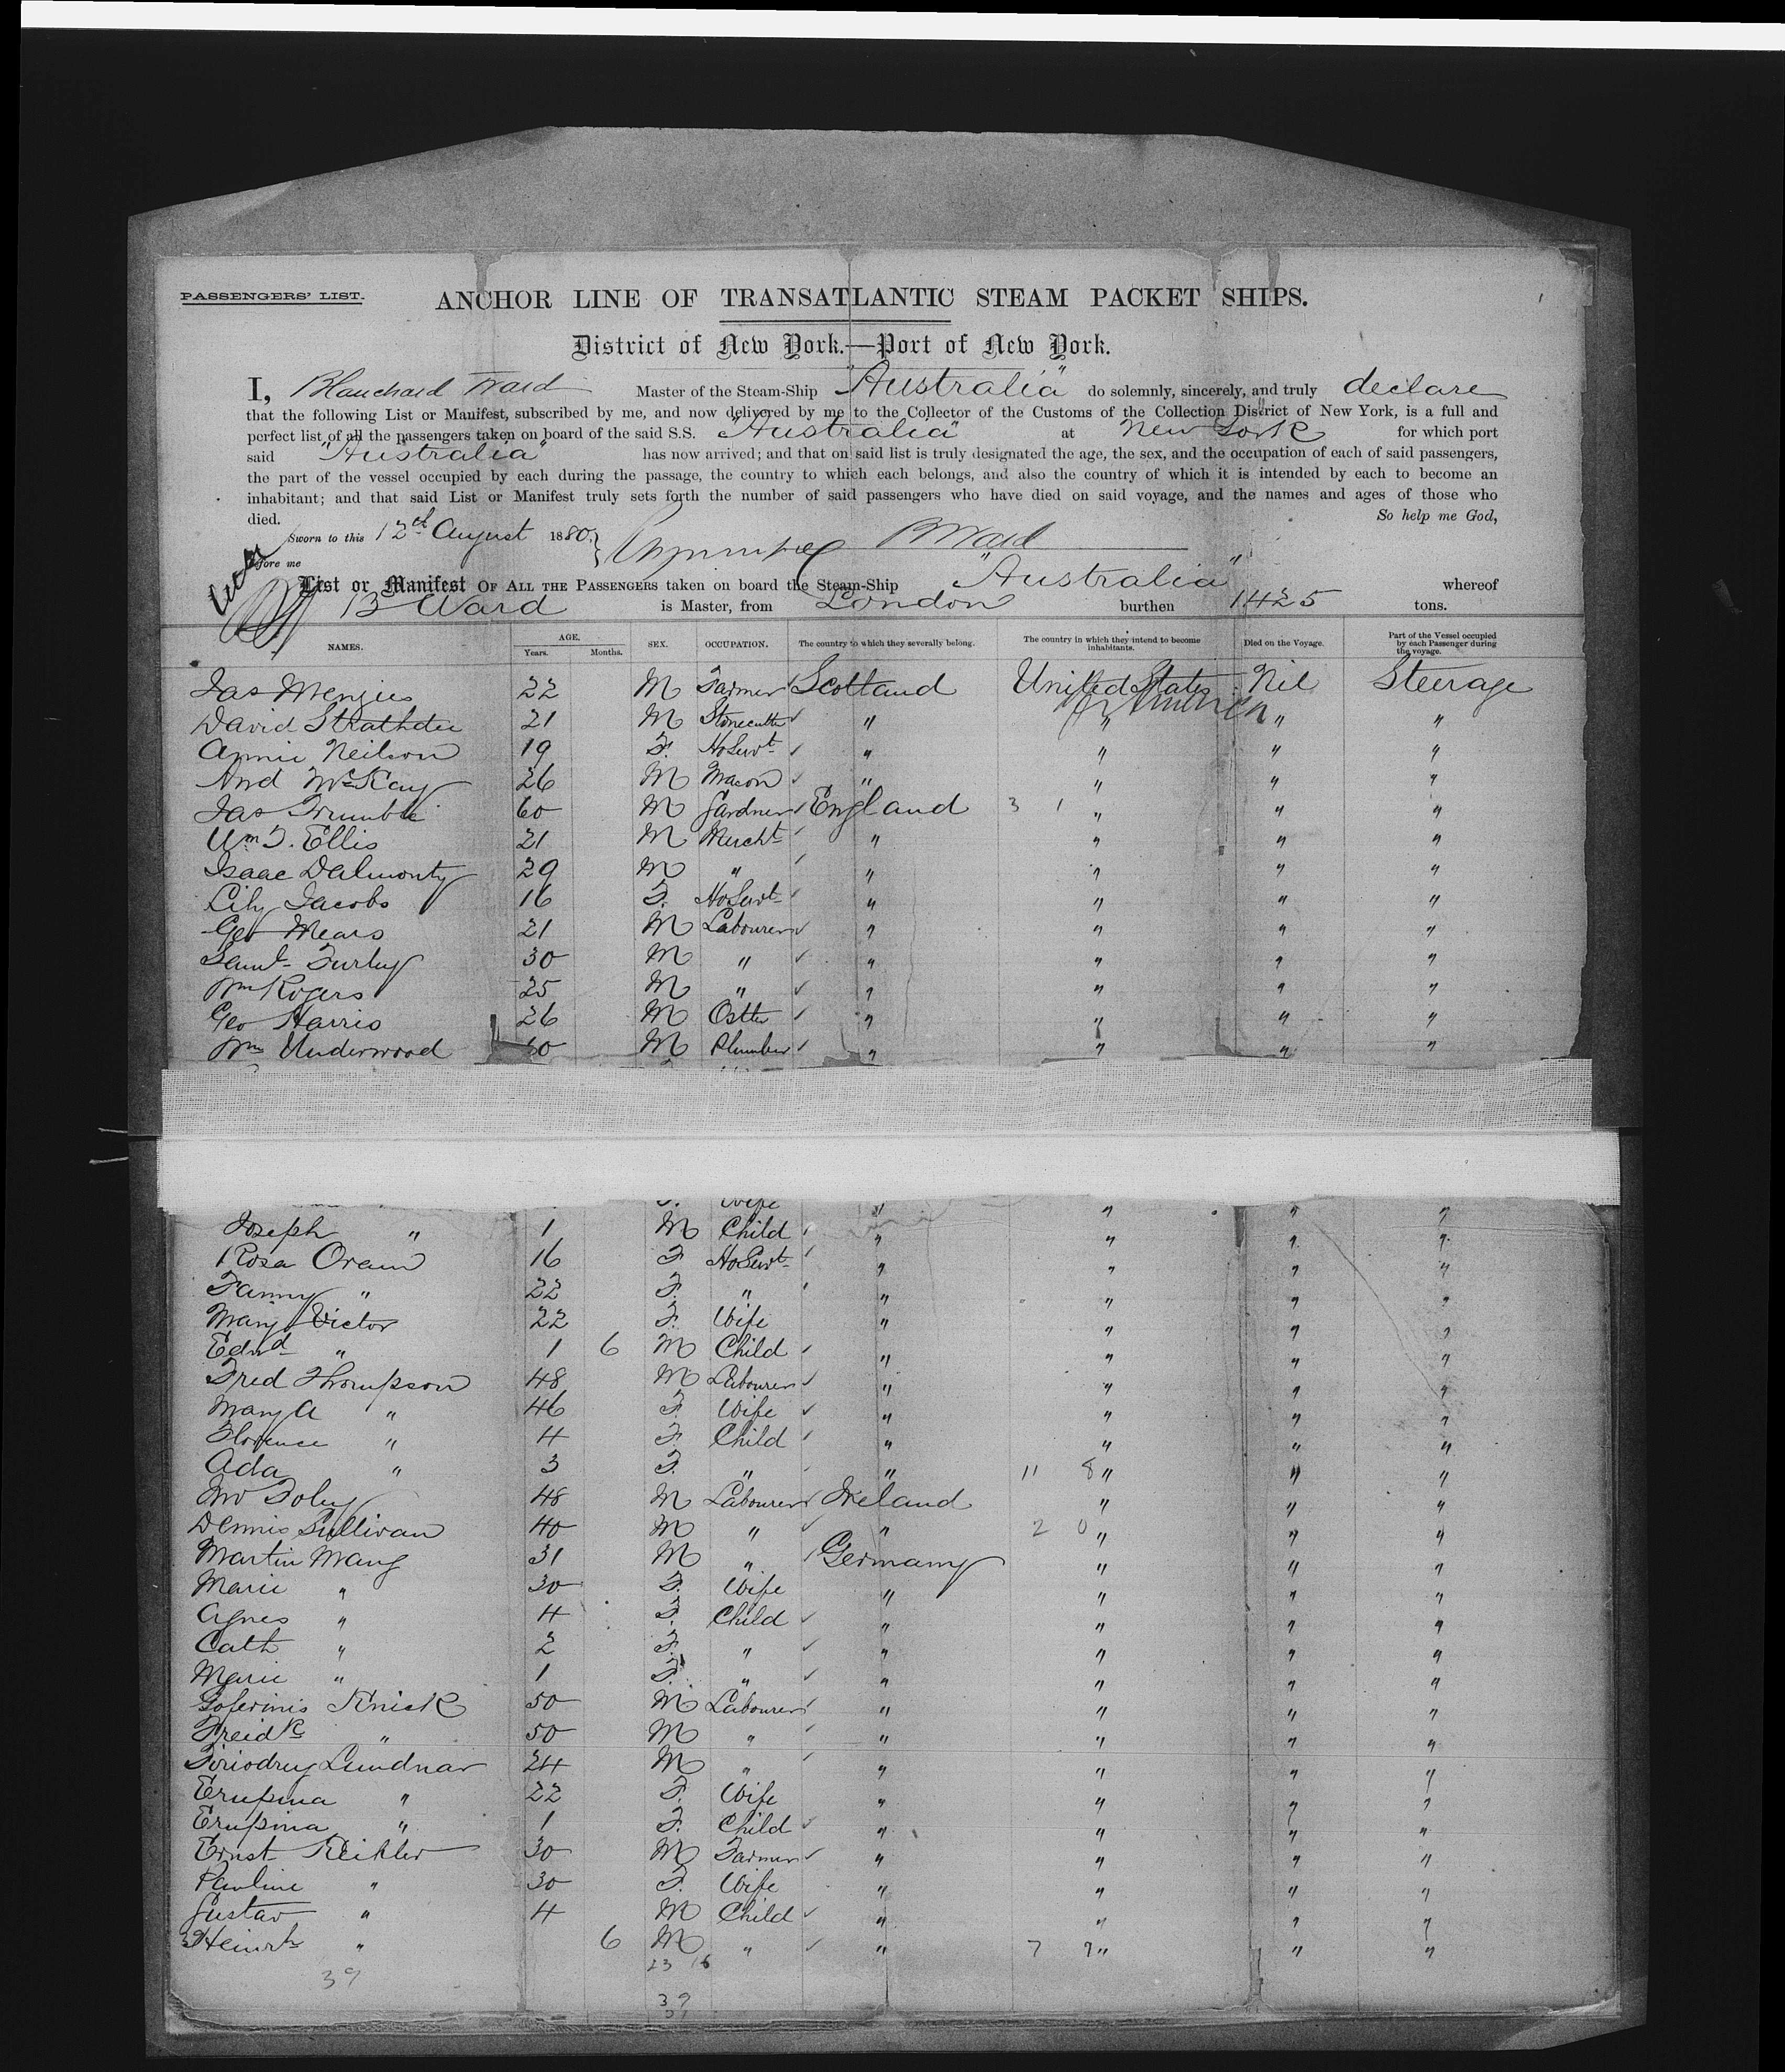 PASSENGERS' LIST.
ANCHOR LINE OF TRANSATLANTIC STEAM PACKET SHIPS.
District of New York.—Port of New York.
I, Blanchard Ward Master of the Steam-Ship "Australia" do solemnly, sincerely, and truly declare
that the following List or Manifest, subscribed by me, and now delivered by me to the Collector of the Customs of the Collection District of New York, is a full and
perfect list of all the passengers taken on board of the said S.S. "Australia" at New York for which port
said "Australia" has now arrived; and that on said list is truly designated the age, the sex, and the occupation of each of said passengers,
the part of the vessel occupied by each during the passage, the country to which each belongs, and also the country of which it is intended by each to become an
inhabitant; and that said List or Manifest truly sets forth the number of said passengers who have died on said voyage, and the names and ages of those who
died. So help me God,
Sworn to this 12th August 1880. B Ward
before me
List or Manifest OF ALL THE PASSENGERS taken on board the Steam-Ship "Australia" whereof
B Ward is Master, from London burthen 1425 tons.
NAMES. AGE. Years. Months. SEX. OCCUPATION. The country to which they severally belong. The country in which they intend to become inhabitants. Died on the Voyage. Part of the Vessel occupied by each Passenger during the voyage.
Jas Menjies 22 M Farmer Scotland United States of America Nil Steerage
David Strathdee 21 M Stonecutter " " " "
Annie Neilson 19 F. HoServt " " " "
And McKay 26 M Mason " " " "
Jas Trumble 60 M Gardner England 3 1 " " "
Wm T. Ellis 21 M Mercht " " " "
Isaac Dalmonty 29 M " " " " "
Lily Jacobs 16 F. HoServt " " " "
Geo Mears 21 M Labourer " " " "
Saml Furley 30 M " " " " "
Wm Rogers 25 M " " " " "
Geo Harris 26 M Ostler " " " "
Wm Underwood M Plumber " " " "
F. Wife " " " "
Joseph " 1 M Child " " " "
Rosa Oram 16 F HoServt " " " "
Fanny " 22 F. " " " " "
Mary Victor 22 F. Wife " " " "
Edwd " 1 6 M Child " " " "
Fred Thompson 48 M Labourer " " " "
Mary A " 46 F. Wife " " " "
Florence " 4 F. Child " " " "
Ada " 3 F. " " 11 8 " " "
Jno Foley 48 M Labourer Ireland " " "
Dennis Sullivan 40 M " " 2 0 " " "
Martin Mang 31 M " Germany " " "
Marie " 30 F. Wife " " " "
Agnes " 4 F. Child " " " "
Cath " 2 F. " " " " "
Marie " 1 F. " " " " "
Knick 50 M Labourer " " " "
Freidk " 50 M " " " " "
Lundnar 24 M " " " " "
Erupina " 22 F. Wife " " " "
Erupina " 1 F. Child " " " "
Ernst Reihler 30 M Farmer " " " "
Pauline " 30 F. Wife " " " "
Gustav " 4 M Child " " " "
Heinrh " 6 M " " 7 9 " " "
23 16
39
39